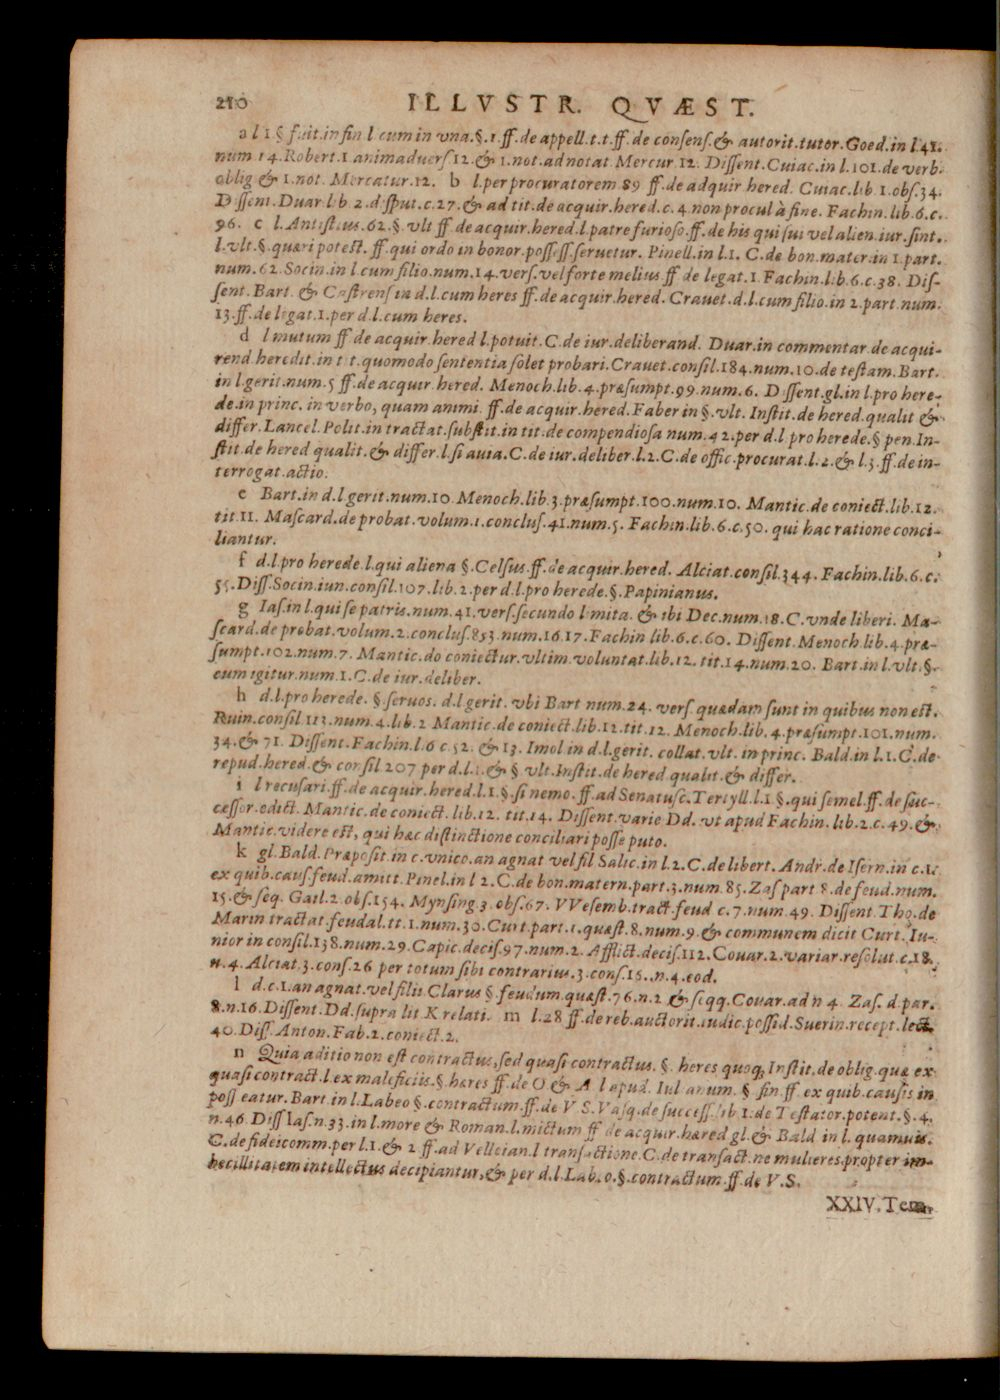 210 ILLVSTR. QVÆST.
a l 1 § fuit.in fin l cum in vna.§.1.ff.de appell.t.t.ff.de consens.& autorit.tutor.Goed.in l 41.
num 14.Robert.1 animaduers 12.& 1.not.ad notat Mercur 12. Dissent.Cuiac.in l.101.de verb.
oblig & 1.not. Mercatur.12. b l.per procuratorem 89 ff.de adquir hered. Cuiac.lib 1.obs.34.
Dissent. Duar l b 2.disput.c.27.& ad tit.de acquir.hered.c.4.non procul à fine. Fachin.lib.6.c.
96. c l. Antistius.62.§.vlt ff.de acquir.hered.l.patre furioso.ff.de his qui sui vel alien.iur.sint.
l.vlt.§.quæri potest. ff.qui ordo in bonor.possess.seruetur. Pinell.in l.1. C.de bon.mater.in 1.part.
num.62.Socin.in l.cum filio.num.14.vers.vel forte melius ff de legat.1 Fachin.lib.6.c.38. Dis-
sent.Bart. & Castrens in d.l.cum heres ff.de acquir.hered. Crauet.d.l.cum filio.in 2.part.num.
13.ff.de legat.1.per d.l.cum heres.
d l mutum ff de acquir.hered l.potuit.C.de iur.deliberand. Duar.in commentar de acqui-
rend heredit.in tit.quomodo sententia solet probari.Crauet.consil.184.num.10.de testam.Bart.
in l.gerit.num.5 ff.de acquir.hered. Menoch.lib.4.præsumpt.99.num.6. Dissent.gl.in l.pro here-
de.in princ. in verbo, quam animi. ff.de acquir.hered. Faber in §.vlt. Instit.de hered.qualit &
differ.Lancel.Polit.in tractat.substit.in tit.de compendiosa num.42.per d.l pro herede.§ pen.In-
stit.de hered qualit.& differ.l.si auia.C.de iur.deliber.l.2.C.de offic.procurat.l.2.& l.3.ff.de in-
terrogat.actio.
e Bart.in d.l gerit.num.10. Menoch.lib.3.præsumpt.100.num.10. Mantic.de coniect.lib.12.
tit.11. Mascard.de probat.volum.1.conclus.41.num.5. Fachin.lib.6.c.50. qui hac ratione conci-
liantur.
f d.l.pro herede.l.qui aliena §.Celsus.ff.de acquir.hered. Alciat.consil.344. Fachin.lib.6.c.
55.Diss.Socin.iun.consil.107.lib.2.per d.l.pro herede.§.Papinianus.
g Ias.in l.qui se patris.num.41.vers.secundo limita. & ibi Dec.num.18.C.vnde liberi. Ma-
scard.de probat.volum.2.conclus.853.num.16.17.Fachin lib.6.c.60. Dissent.Menoch.lib.4.præ-
sumpt.102.num.7. Mantic.do coniectur.vltim.voluntat.lib.12. tit.14.num.20. Bart.in l.vlt.§.
eum igitur.num.1.C.de iur.deliber.
h d.l.pro herede. §.seruos. d.l gerit. vbi Bart num.24. vers quædam sunt in quibus non est.
Ruin.consil 113.num.4.lib.2 Mantic.de coniect.lib.12.tit.12. Menoch.lib.4.præsumpt.101.num.
34.& 71. Dissent.Fachin.l.6 c.52. & 13. Imol in d.l.gerit. collat.vlt.in princ. Bald.in l.1.C.de
repud.hered.& consil 207 per d.l.1.& § vlt.Instit.de hered qualit.& differ.
i l recusari.ff.de acquir.hered.l.1.§.si nemo.ff.ad Senatusc.Tertyll.l.1 §.qui semel.ff.de suc-
cessor.edict. Mantic.de coniect.lib.12. tit.14. Dissent.varie Dd. vt apud Fachin.lib.2.c.49.&
Mantic.videre est, qui hæc distinctione conciliari posse puto.
k gl.Bald.Præposit.in c.vnico.an agnat vel fil Salic.in l.2.C.de libert. Andr.de Isern.in c.1.
ex quib.caus.feud.amitt.Pinel.in l 2.C.de bon.matern.part.3.num 85.Zas part 8.de feud.num.
15.& seq. Gail.2 obs.154. Mynsing.3.obs.67. VVesemb.tract.feud c.7.num.49. Dissent.Tho.de
Marin tractat.feudal.tt.1.num.30.Curt.part.1.quæst.8.num.9.& communem dicit Curt. Iu-
nior in consil.138.num.29.Capic.decis.97.num.2. Afflict.decis.112.Couar.2.variar.resolut.c.18.
n.4. Alciat.3.cons.26 per totum sibi contrarius.3.cons.15..n.4.eod.
l d.c.1.an agnat.vel filii.Clarus §.feudum.quæst.76.n.2 & seqq.Couar.ad n 4. Zas. d.par.
8.n.16.Dissent.Dd.supra lit K relati. m l.28 ff.de reb.auctorit.iudic.possid.Suerin.recept.lect.
40.Diss.Anton.Fab.2.coniect.2.
n Quia aditio non est contractus,sed quasi contractus. §. heres quoq; Instit.de oblig.quæ ex
quasi contract.l.ex maleficiis.§.hæres ff.de O & A l apud. Iulianum. § fin.ff. ex quib.causis in
poss eatur.Bart.in l.Labeo §.contractum.ff.de V.S.Vasq.de success.lib 1.de Testator.potent.§.4.
n.46 Diss Ias.n.33.in l.more & Roman.l.mictum ff de acquir.hæred gl.& Bald in l. quamuis.
C.de fideicomm.per l.1.& 2 ff.ad Velleian.l transactione.C.de transact.ne mulieres.propter im-
becillitatem intellectus decipiantur,& per d.l.Labeo.§.contractum.ff.de V.S.
XXIV.Tem-